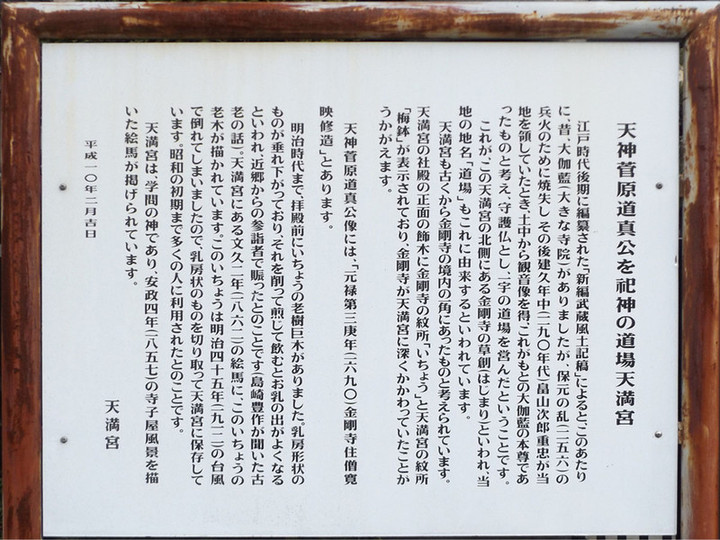 天神菅原道真公を祀神の道場天満宮
江戸時代後期に編纂された「新編武蔵風土記稿」によると、このあたり
に、昔、大伽藍(大きな寺院)がありましたが、保元の乱(一一五六)の
兵火のために焼失し、その後建久年中(一一九〇年代)畠山次郎重忠が当
地を領していたとき、土中から観音像を得、これがもとの大伽藍の本尊であ
ったものと考え、守護仏とし、一宇の道場を営んだということです。
これが、この天満宮の北側にある金剛寺の草創(はじまり)といわれ、当
地の地名「道場」もこれに由来するといわれています。
天満宮も古くから金剛寺の境内の角にあったものと考えられています。
天満宮の社殿の正面の飾木に金剛寺の紋所「いちょう」と天満宮の紋所
「梅鉢」が表示されており、金剛寺が天満宮に深くかかわっていたことが
うかがえます。
天神菅原道真公像には、「元禄第三庚年(一六九〇)金剛寺住僧寛
映修造」とあります。
明治時代まで、拝殿前にいちょうの老樹巨木がありました。乳房形状の
ものが垂れ下がっており、それを削って煎じて飲むとお乳の出がよくなる
といわれ、近郷からの参詣者で賑ったとのことです(島崎豊作が聞いた古
老の話)。天満宮にある文久二年(一八六二)の絵馬に、このいちょうの
老木が描かれています。このいちょうは明治四十五年(一九一二)の台風
で倒れてしまいましたので、乳房状のものを切り取って天満宮に保存して
います。昭和の初期まで多くの人に利用されたとのことです。
天満宮は、学問の神であり、安政四年(一八五七)の寺子屋風景を描
いた絵馬が掲げられています。
平成一〇年二月吉日
天満宮